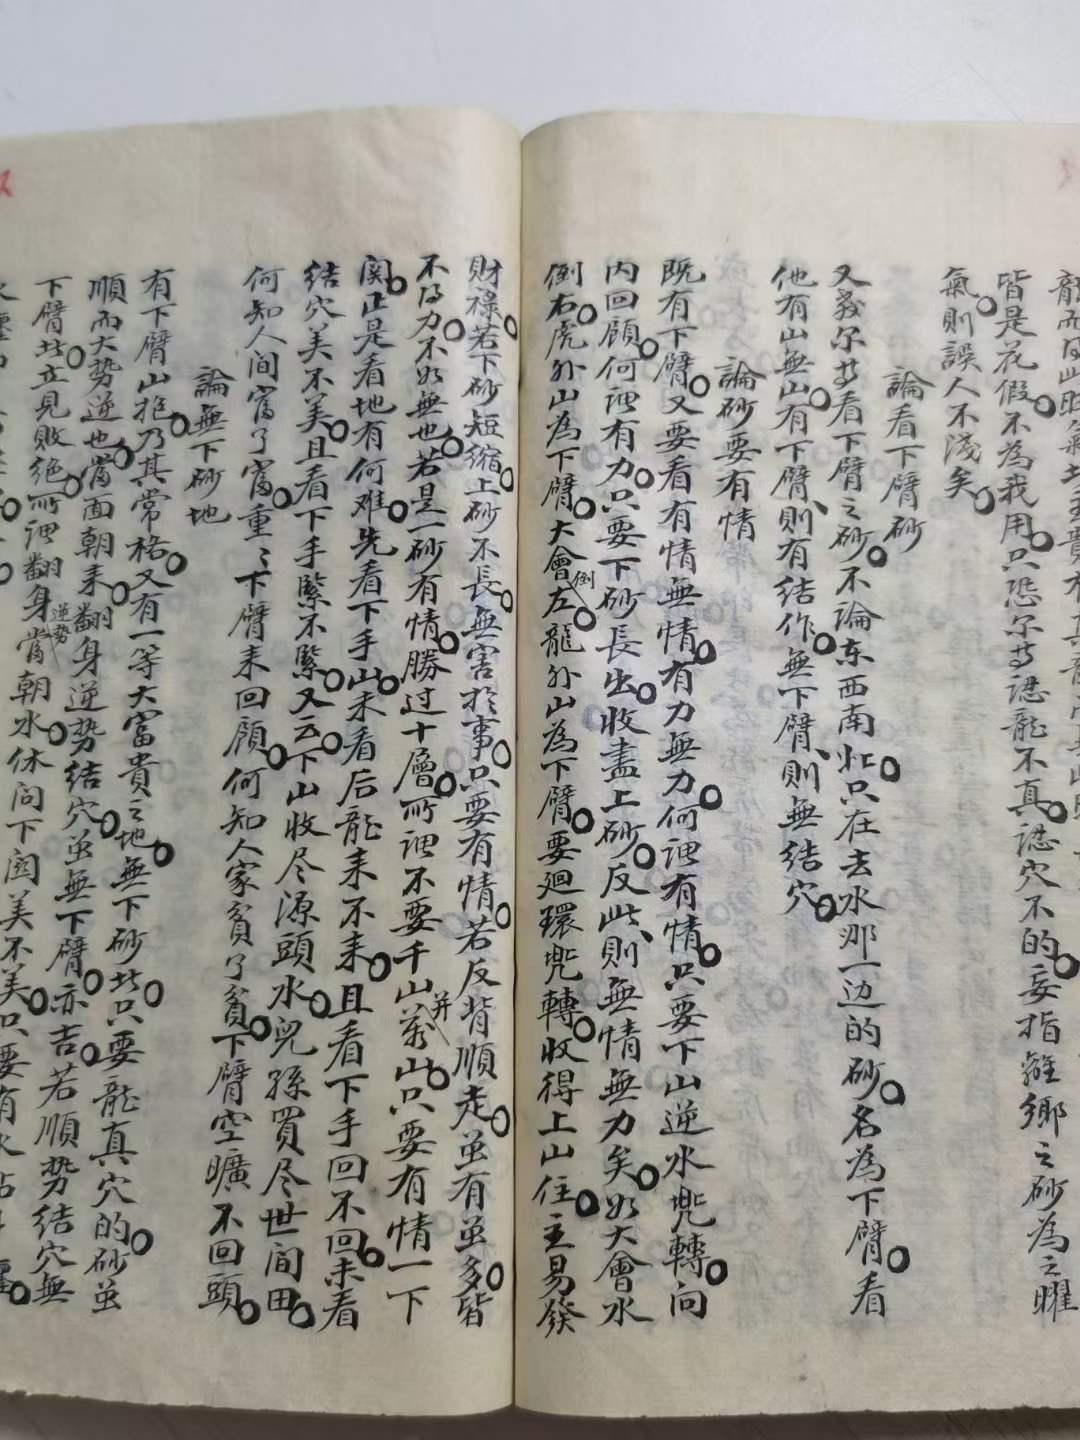 皆是花假。不為我用。只恐尔等認龍不真。認穴不的。妄指離鄉之砂為之曜
氣。則誤人不淺矣。
論看下臂砂
又教尔等看下臂之砂。不論东西南北。只在去水那一边的砂。名為下臂。看
他有山無山。有下臂、則有結作。無下臂、則無結穴。
論砂要有情
既有下臂。又要看有情無情。有力無力。何謂有情。只要下山逆水兜轉。向
内回顧。何謂有力。只要下砂長出。收盡上砂。反此、則無情無力矣。如大會水
倒右。虎外山為下臂。大會倒左。龍外山為下臂。要廻環兜轉。收得上山住。主易發
財禄。若下砂短縮。上砂不長。無害於事。只要有情。若反背順走。虽有虽多。皆
不得力。不如無也。若是一砂有情。勝过十層。所謂不要千山并萬山。只要有情一下
関。正是看地有何难。先看下手山。未看后龍来不来。且看下手回不回。未看
結穴美不美。且看下手緊不緊。又云。下山收尽源頭水。兒孫買尽世间田。
何知人间富了富。重〻下臂来回顧。何知人家貧了貧。下臂空曠不回頭。
論無下砂地
有下臂山抱。乃其常格。又有一等大富貴之地。無下砂者。只要龍真穴的。砂虽
順而大势逆也。當面朝来。翻身逆势結穴。虽無下臂。亦吉。若順势結穴無
下臂者。立見敗絕。所謂翻身逆势當朝水。休问下関美不美。只要有